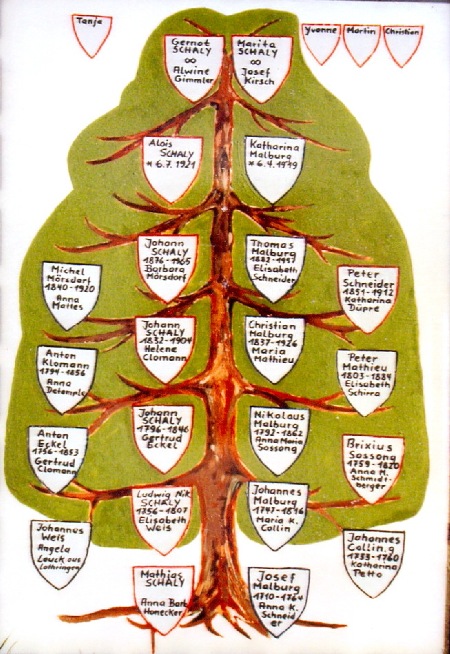 Tanja
Gernot
SCHALY
∞
Alwine
Gimmler
Marita
SCHALY
∞
Josef
Kirsch
Yvonne
Martin
Christian
Alois
SCHALY
* 6.7.1921
Katharina
Malburg
* 6.4.1919
Johann
SCHALY
1876-1965
Barbara
Mörsdorf
Thomas
Malburg
1882-1957
Elisabeth
Schneider
Michel
Mörsdorf
1840-1920
Anna
Mattes
Peter
Schneider
1851-1912
Katharina
Düpre
Johann
SCHALY
1832-1904
Helene
Clomann
Christian
Malburg
1837-1926
Maria
Mathieu
Anton
Klomann
1794-1856
Anna
Detemple
Peter
Mathieu
1803-1834
Elisabeth
Schirra
Johann
SCHALY
1796-1846
Gertrud
Eckel
Nikolaus
Malburg
1792-1862
Anna Maria
Sossong
Anton
Eckel
1756-1853
Gertrud
Clomann
Brixius
Sossong
1759-1820
Anna M.
Schmidt-
berger
Ludwig Nik.
SCHALY
1756-1807
Elisabeth
Weis
Johannes
Malburg
1747-1816
Maria K.
Collin
Johannes
Weis
Angela
Lauck aus
Lothringen
Johannes
Collin.g
1733-1760
Katharina
Petto
Mathias
SCHALY
Anna Barb.
Honecker
Josef
Malburg
1710-1764
Anna K.
Schneid-
er